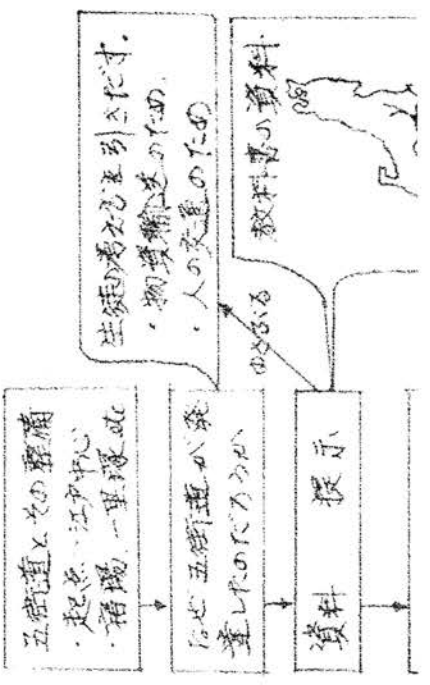 五街道とその整備
・起点…江戸中心
・宿場、一里塚 etc
なぜ五街道が発
達したのだろうか
資料　提示
生徒の考えを引きだす。
・物資輸送のため
・人の交通のため
ゆさぶる
教科書の資料